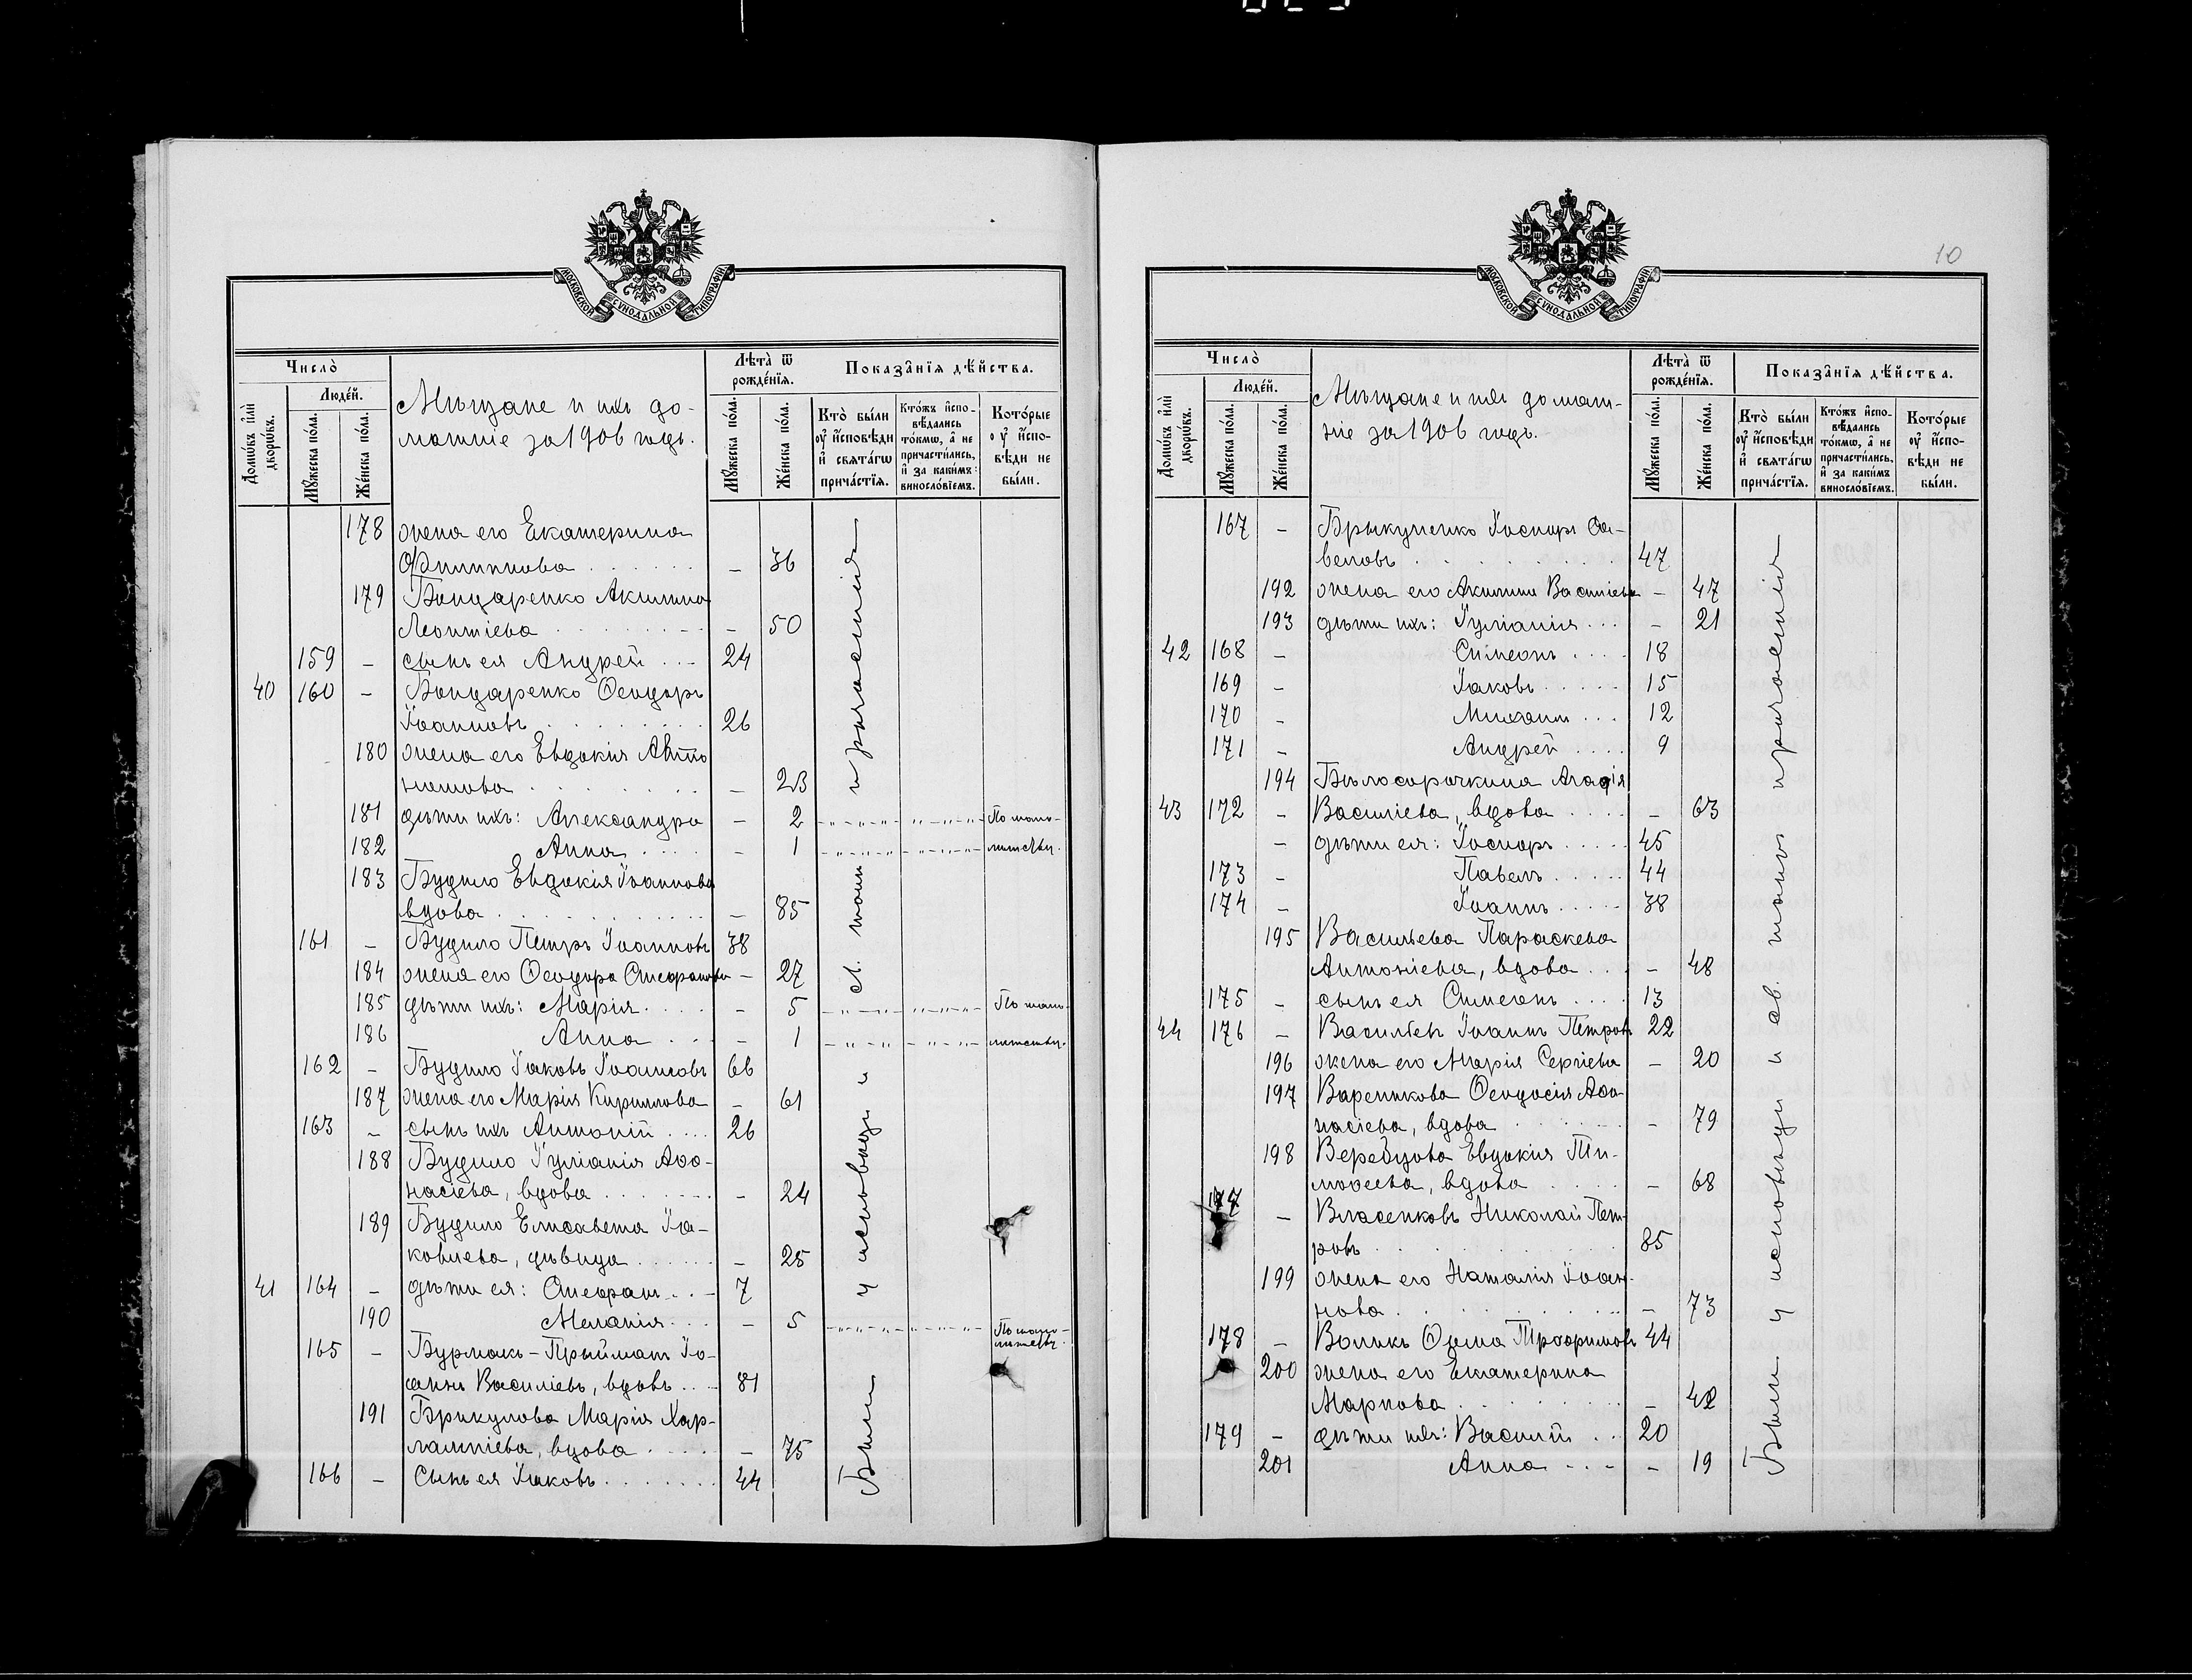 МОСКОВСКОЙ СѴНОДАЛЬНОЙ ТИПОГРАФІИ
Число̀
Люде́й.
Домѡ́въ и҆лѝ дворѡ́въ.
Мꙋ́жеска по́ла.
Же́нска по́ла.
Мѣщане и ихъ до-
машніе за 1906 годъ.
Лѣта̀ ѿ рожде́нїя.
Мꙋ́жеска по́ла.
Же́нска по́ла.
Показа̑нїя дѣ́йства.
Кто̀ бы́ли ᲂу҆ и҆́сповѣди и҆ свята́гѡ прича́стїя.
Кто́жъ и҆спо-вѣ́дались то́кмѡ, а҆ не причасти́лись, и҆ за каки́мъ винослⷪ́вїемъ.
Кото́рые ᲂу҆ и҆́спо-вѣди не бы́ли.
178 жена его Екатерина
Филиппова . . . . . . – 36
179 Бондаренко Акилина
Леонтіева . . . . . . – 50
159 – сынъ ея Андрей . . – 24
40 160 – Бондаренко Ѳеодоръ
Іоанновъ . . . . . . 26
180 жена его Евдокія Анто
номова . . . . . . – 23
181 дѣти ихъ: Александра – 2 По мало-
182 Анна . . . – 1 лѣтству.
183 Будило Евдокія Іоаннова
вдова . . . . . . – 85
161 – Будило Петръ Іоанновъ 38
184 жена его Ѳеодора Стефанова – 27
185 дѣти ихъ: Марія . . . – 5 По мало-
186 Анна . . . – 1 лѣтству.
162 – Будило Іаковъ Іоанновъ 66
187 жена его Марія Кириллова – 61
163 – сынъ ихъ Антоній . . . 26
188 Будило Іуліанія Аѳа-
насіева, вдова . . . . – 24
189 Будило Елисавета Іа-
ковлева, дѣвица . . . – 25
41 164 – дѣти ея: Стефанъ . . – 7
190 Меланія . . . – 5 По мало-
лѣтству.
165 – Бурмакъ-Прыйманъ Іо-
аннъ Василіевъ, вдовъ . . 81
191 Брикулова Марія Хар-
лампіева, вдова . . . – 75
166 – Сынъ ея Іаковъ . . . . 44
Были у исповѣди и св. таинъ причастія
10
МОСКОВСКОЙ СѴНОДАЛЬНОЙ ТИПОГРАФІИ
Число̀
Люде́й.
Домѡ́въ и҆лѝ дворѡ́въ.
Мꙋ́жеска по́ла.
Же́нска по́ла.
Мѣщане и ихъ домаш-
ніе за 1906 годъ.
Лѣта̀ ѿ рожде́нїя.
Мꙋ́жеска по́ла.
Же́нска по́ла.
Показа̑нїя дѣ́йства.
Кто̀ бы́ли ᲂу҆ и҆́сповѣди и҆ свята́гѡ прича́стїя.
Кто́жъ и҆спо-вѣ́дались то́кмѡ, а҆ не причасти́лись, и҆ за каки́мъ винослⷪ́вїемъ.
Кото́рые ᲂу҆ и҆́спо-вѣди не бы́ли.
167 – Іосифъ
47
192 жена его Акилина Василіева – 47
193 дѣти ихъ: Іуліанія . . . – 21
42 168 – Симеонъ . . . . 18
169 – Іаковъ . . . . . 15
170 – Михаилъ . . . 12
171 – Андрей . . . . 9
194 Бѣлосорочкина Агафія
43 172 – Василіева, вдова . . . . – 63
– дѣти ея: Іосифъ . . . . . 45
173 – Павелъ . . . . . 44
174 – Іоаннъ . . . . . 38
195 Васильева Параскева
Антоніева, вдова . . . – 48
175 – сынъ ея Симеонъ . . . . 13
44 176 – Васильевъ Іоаннъ Петровъ 22
196 жена его Марія Сергіева – 20
197 Вареникова Ѳеодосія Аѳа-
насіева, вдова . . . . . – 79
198 Веребцова Евдокія Ти-
моѳеева, вдова . . . . – 68
177 – Власенковъ Николай Пет-
ровъ . . . . . . 85
199 жена его Наталія Іоан-
нова . . . . . . – 73
178 – Воликъ Ѳома Трофимовъ 44
200 жена его Екатерина
Маркова . . . . . . – 42
179 – дѣти ихъ: Василій . . 20
201 Анна . . . – 19
Были у исповѣди и св. таинъ причастія